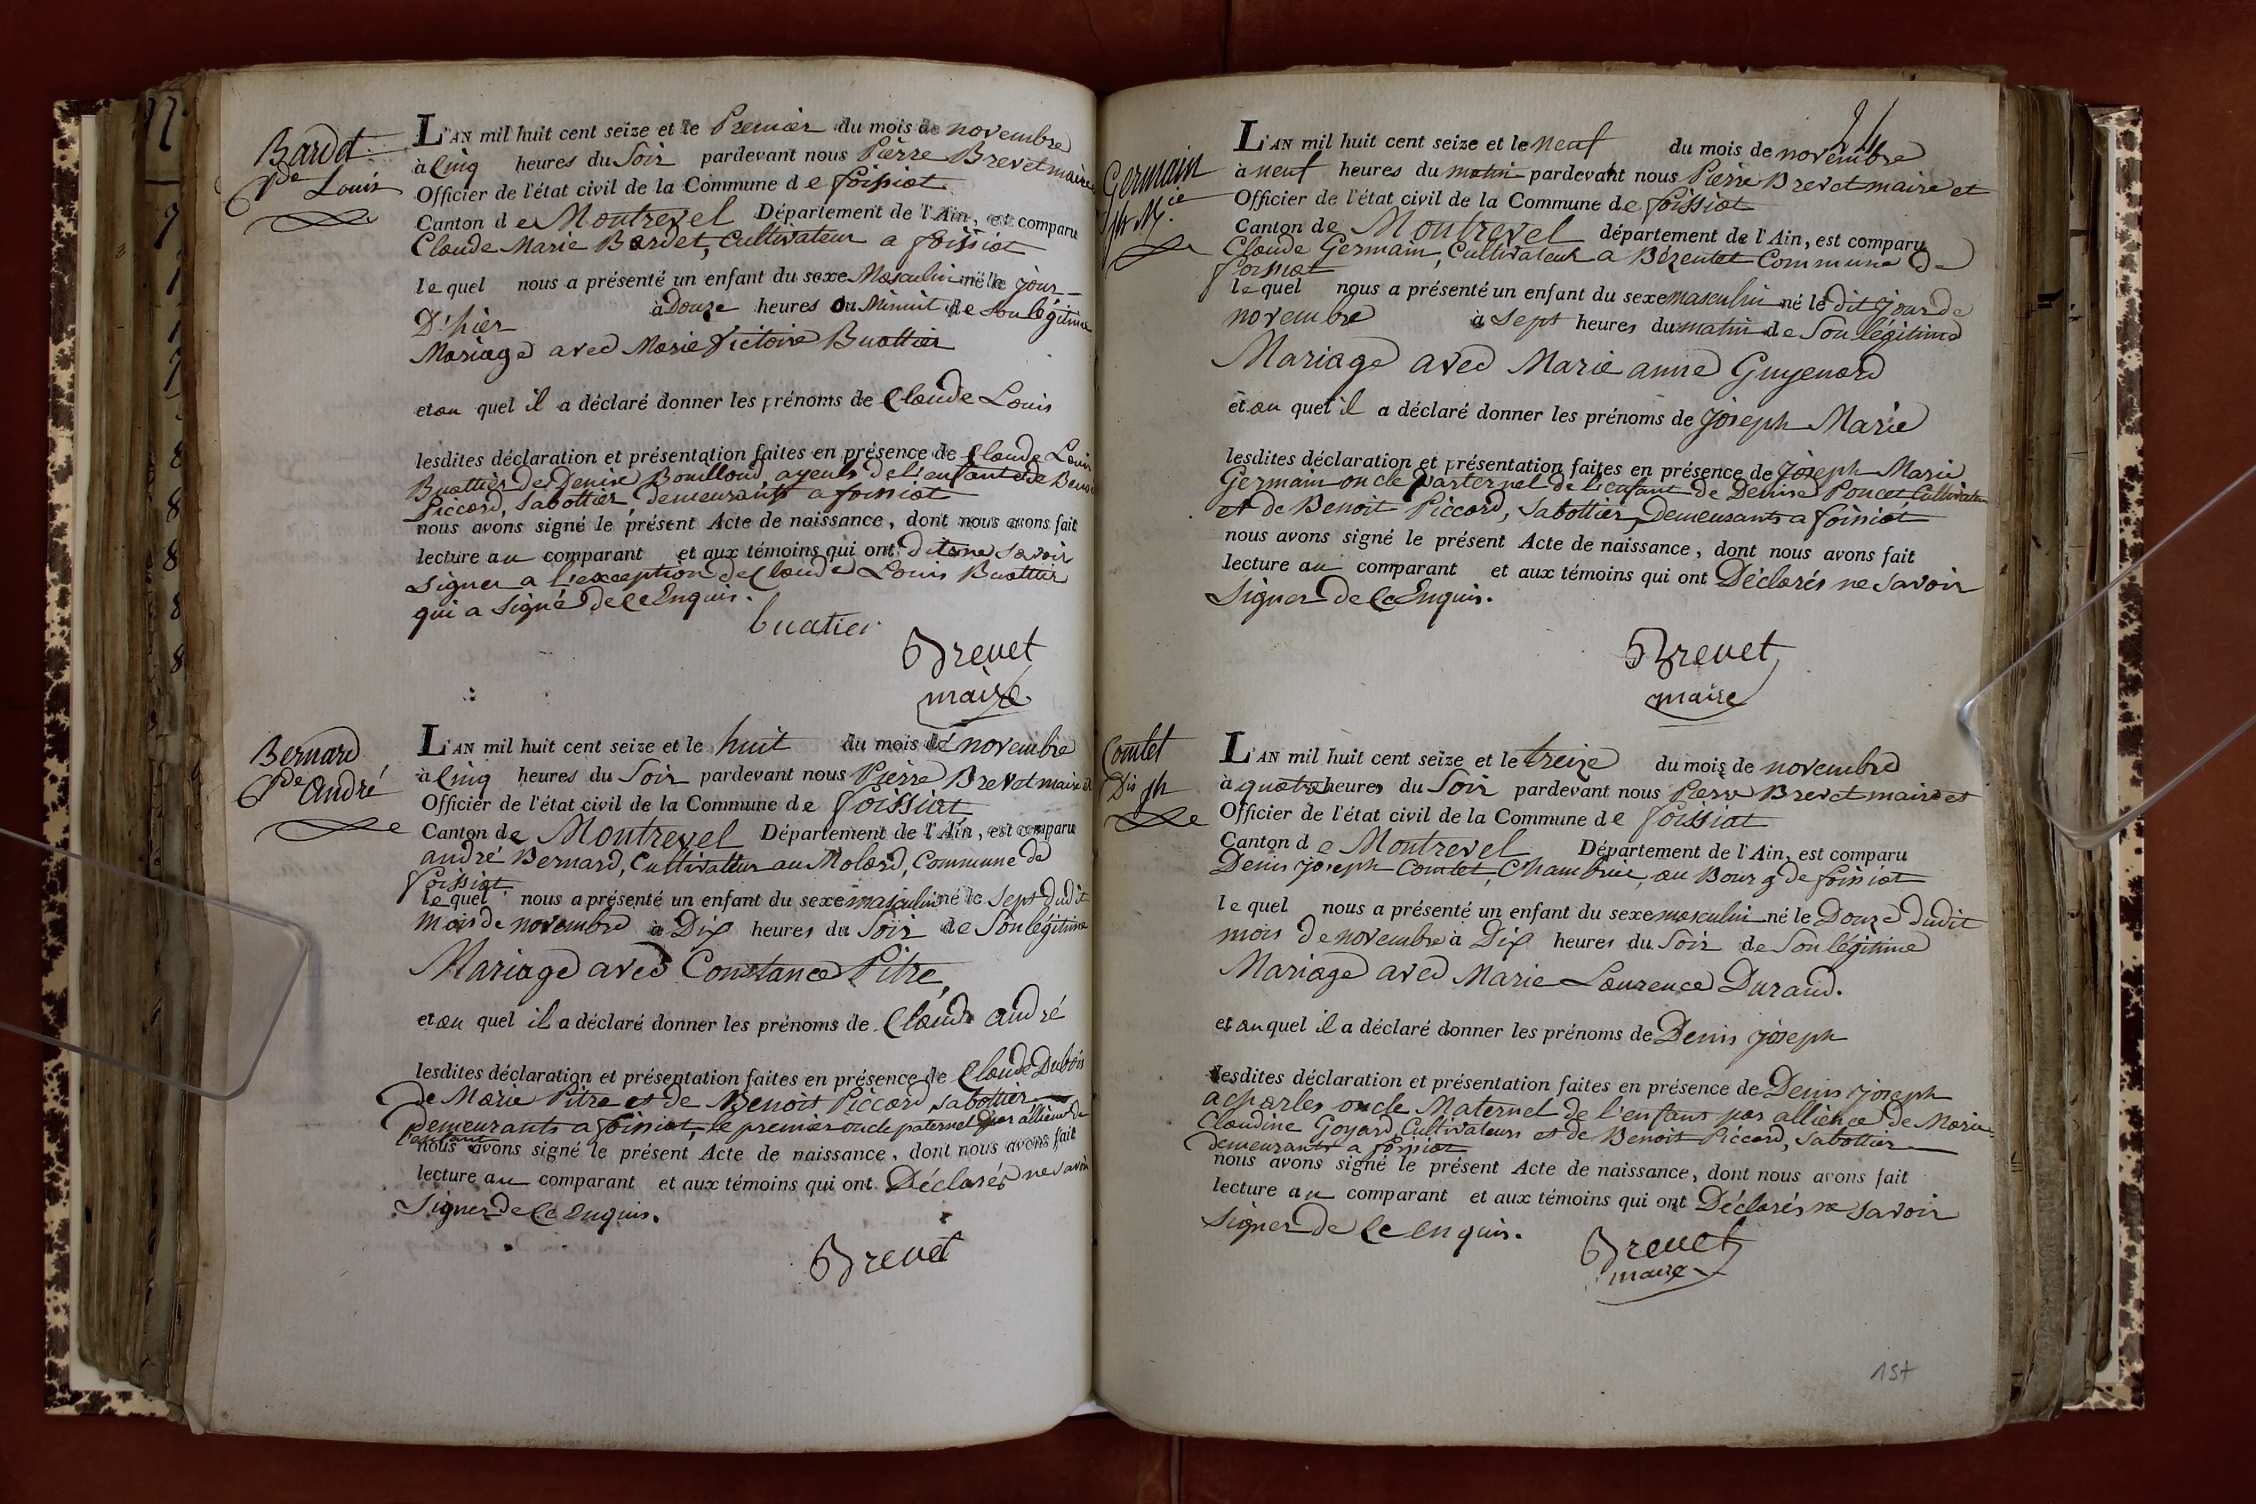 Bardet
Cde Louis
L'AN mil huit cent seize et le Premier du mois de novembre
à Cinq heures du Soir pardevant nous Pierre Brevet maire
Officier de l'état civil de la Commune de foissiat
Canton de Montrevel Département de l'Ain, est comparu
Claude Marie Bardet, Cultivateur a foissiat
le quel nous a présenté un enfant du sexe Masculin né le jour
D'hier à Douze heures Du Minuit de Son légitime
Mariage avec Marie Victoire Buattier
et au quel il a déclaré donner les prénoms de Claude Louis
lesdites déclaration et présentation faites en présence de Claude Louis
Buattier de Denise Bouilloud ayeuls de l'enfant et de Benoit
Piccard, Sabottier, demeurants a foissiat
nous avons signé le présent Acte de naissance, dont nous avons fait
lecture au comparant et aux témoins qui ont dit ne Savoir
Signer a l'exception de Claude Louis Buattier
qui a Signé De Ce Enquis.
buatier
Brevet
maire
Bernard
Cde André
L'AN mil huit cent seize et le huit du mois de novembre
à Cinq heures du Soir pardevant nous Pierre Brevet maire et
Officier de l'état civil de la Commune de foissiat
Canton de Montrevel Département de l'Ain, est comparu
andré Bernard, Cultivateur au Molard, Commune de
foissiat
le quel nous a présenté un enfant du sexe masculin né le Sept dudit
Mois de novembre à Dix heures du Soir de Son légitime
Mariage avec Constance Pitre,
et au quel il a déclaré donner les prénoms de Claude andré
lesdites déclaration et présentation faites en présence de Claude Dubois
De Marie Pitre et de Benoit Piccard Sabottier
Demeurants a foissiat, le premier oncle paternel par allience de
l'enfant
nous avons signé le présent Acte de naissance, dont nous avons fait
lecture au comparant et aux témoins qui ont Déclarés ne Savoir
Signer De Ce Enquis.
Brevet
24
Germain
Jph Mie
L'AN mil huit cent seize et le neuf du mois de novembre
à neuf heures du matin pardevant nous Pierre Brevet maire et
Officier de l'état civil de la Commune de foissiat
Canton de Montrevel département de l'Ain, est comparu
Claude Germain, Cultivateur a Bézentet Commune De
foissiat
le quel nous a présenté un enfant du sexe masculin né le dit jour de
novembre à Sept heures du matin de Son légitime
Mariage avec Marie anne Guyenard
et au quel il a déclaré donner les prénoms de Joseph Marie
lesdites déclaration et présentation faites en présence de Joseph Marie
Germain oncle Parternel de l'enfant de Denise Poncet Cultivateur
et de Benoit Piccard, Sabottier, Demeurants a foissiat
nous avons signé le présent Acte de naissance, dont nous avons fait
lecture au comparant et aux témoins qui ont Déclarés ne Savoir
Signer De Ce Enquis.
Brevet
maire
Comtet
Dis jph
L'AN mil huit cent seize et le treize du mois de novembre
à quatre heures du Soir pardevant nous Pierre Brevet maire et
Officier de l'état civil de la Commune de foissiat
Canton de Montrevel Département de l'Ain, est comparu
Denis joseph Comtet, au Bourg de foissiat
le quel nous a présenté un enfant du sexe masculin né le Douze dudit
mois De novembre à Dix heures du Soir de Son légitime
Mariage avec Marie Laurence Durand.
et au quel il a déclaré donner les prénoms de Denis joseph
lesdites déclaration et présentation faites en présence de Denis joseph
acharles oncle Maternel de l'enfant par allience de Marie
Claudine Goyard, Cultivateurs et de Benoit Piccard, Sabottier
demeurants a foissiat
nous avons signé le présent Acte de naissance, dont nous avons fait
lecture au comparant et aux témoins qui ont Déclarés ne Savoir
Signer De Ce enquis.
Brevet
maire
157